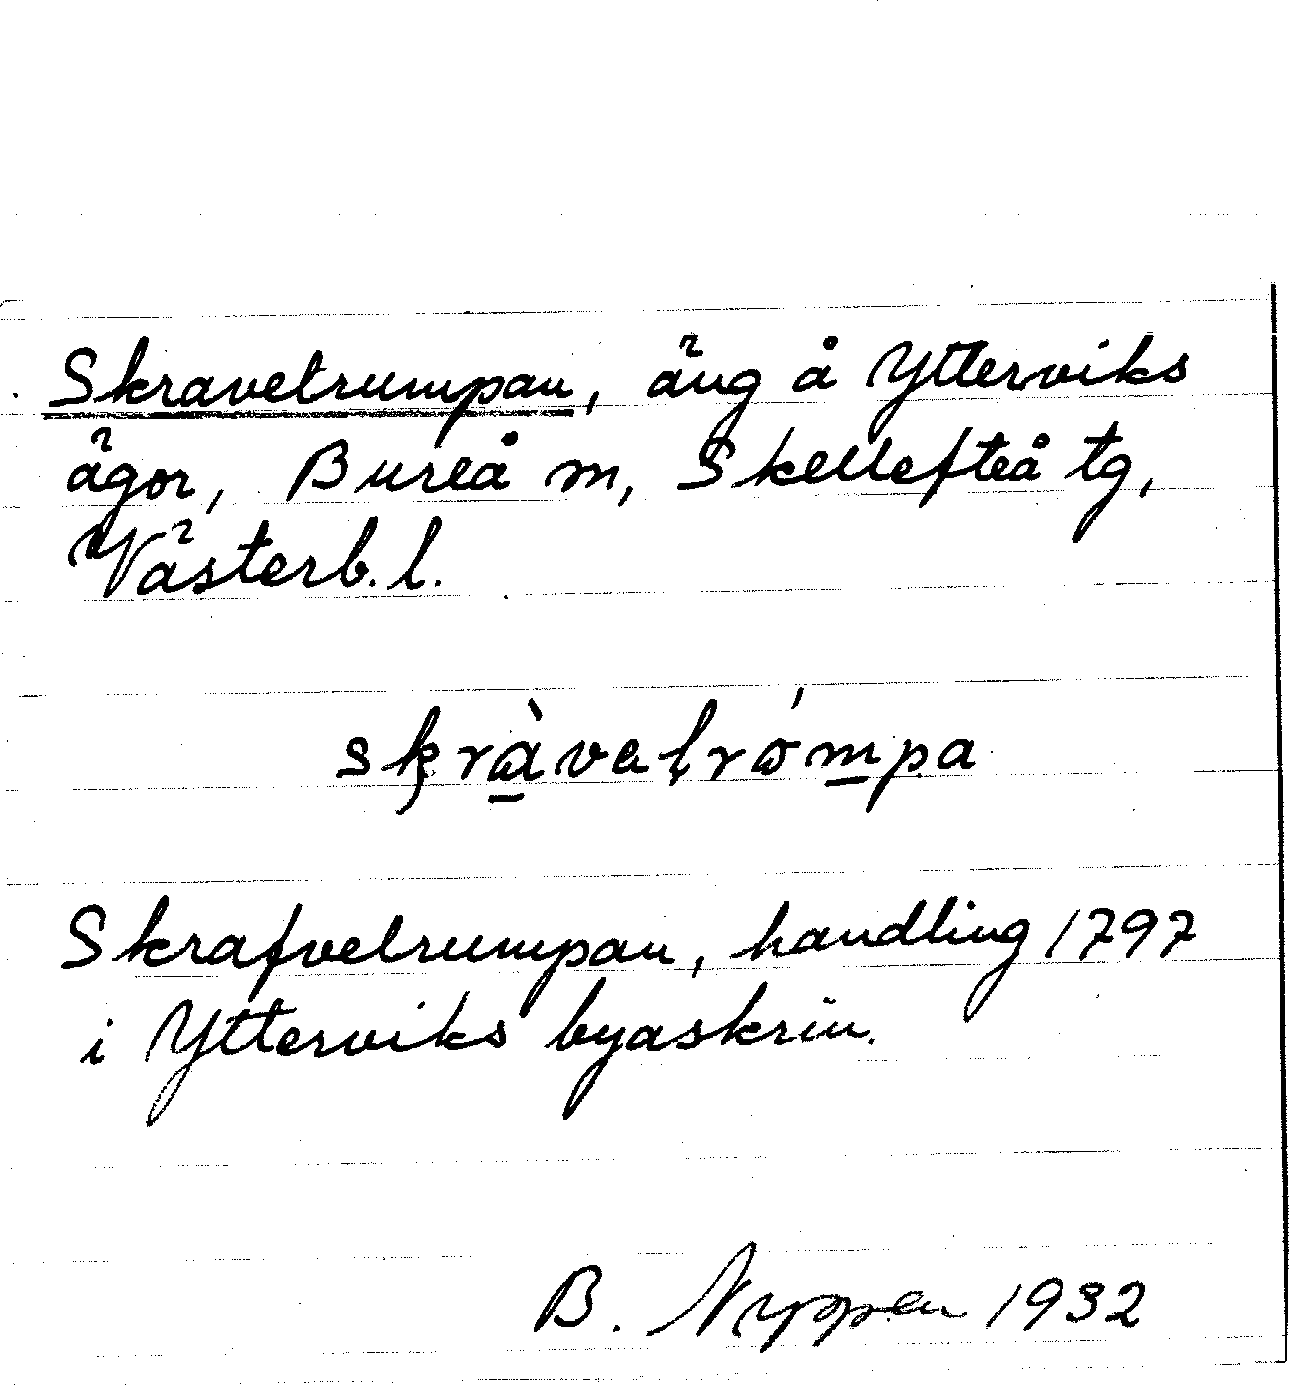 Skravelrumpan, äng å Ytterviks
ägor, Bureå m, Skellefteå tg,
Västerb. l.
skràvelrómpa
Skrafvelrumpan, handling 1797
i Ytterviks byaskrin.
B. 1932